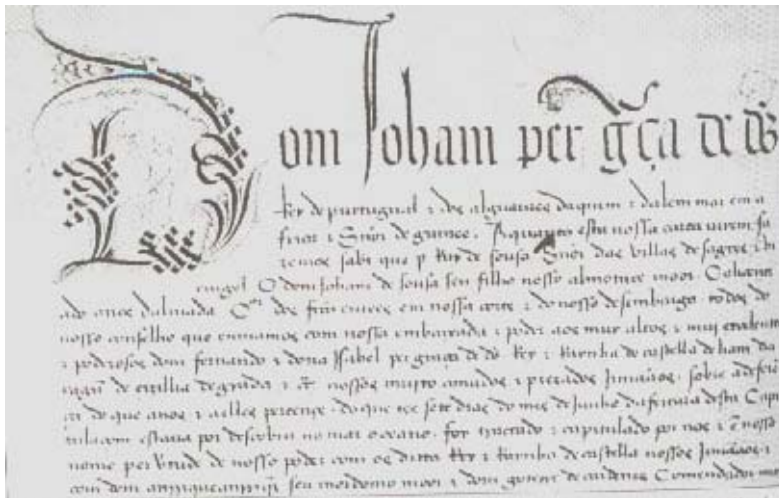 Dom Joham per gr̃ça de ds̃
Rey de purtugual ⁊ dos alguarves daquem ⁊ dalem mar em a
frica ⁊ Snõr de guinee. A quantos esta nossa carta virem fa
zemos saber que per Ruy de sousa Snõr das villas de sagres ⁊ be
ringel E dom Joham de sousa seu filho nosso almotace moor. E o licenci
ado ayres dalmada Cor dos feitos civees em nossa corte ⁊ do nosso desembargo todos do
nosso conselho que enviamos com nossa embaixada ⁊ poder aos muy altos ⁊ muy excelentes
⁊ poderosos dom fernando ⁊ dona Isabel per graça de ds̃ Rey ⁊ Rainha de castella de liam da
ragũ de cezilia de grãda ⁊ cet. nossos muyto amados ⁊ prezados Jrmãaos. sobre a deferen
ça do que a nos ⁊ a elles pertence. do que tee sete dias do mes de Junho da feitura desta Capi
tulacom estava por descobrir no mar oceano. foy trautado ⁊ capitulado por nos ⁊ em nosso
nome per vertude de nosso poder com os ditos Rey ⁊ Rainha de castella nossos Jrmãaos.
com dom anrrique anrriqz seu moordomo moor ⁊ dom goterre de cardenes Comendador m